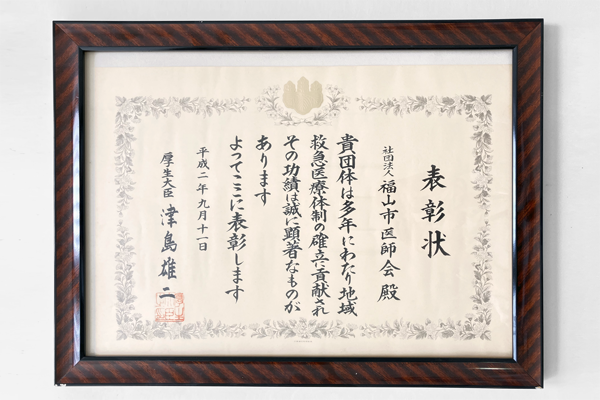 表彰状
社団法人 福山市医師会殿
貴団体は多年にわたり地域
救急医療体制の確立に貢献され
その功績は誠に顕著なものが
あります
よってここに表彰します
平成二年九月十一日
厚生大臣 津島雄二